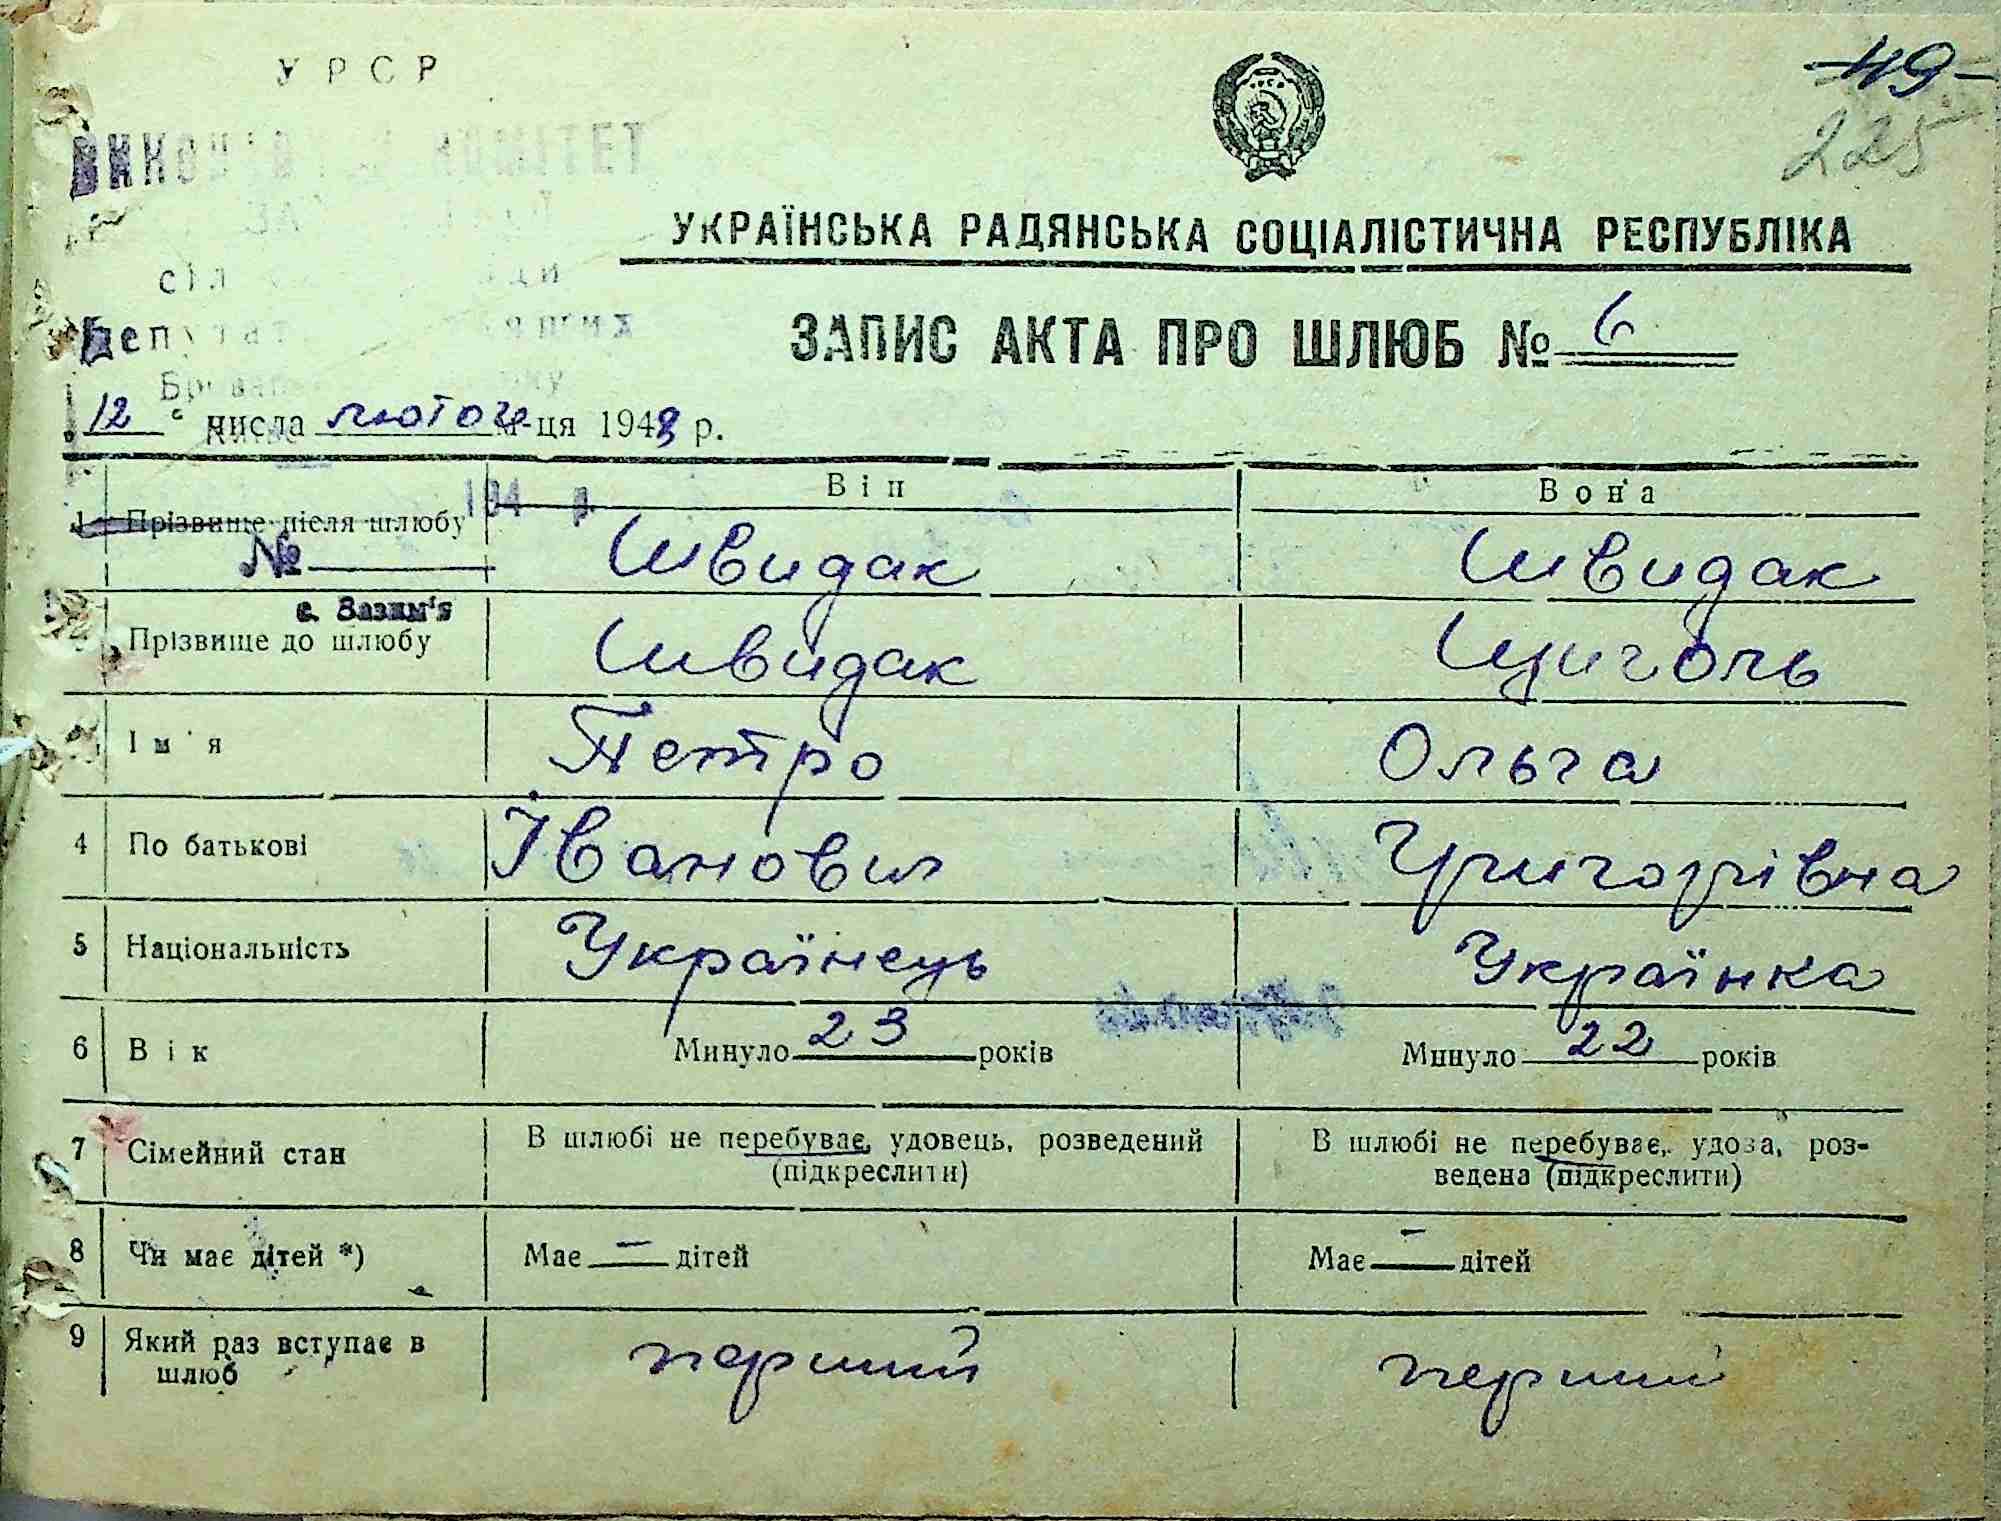 УРСР
-49-
225
КОМІТЕТ
УКРАЇНСЬКА РАДЯНСЬКА СОЦІАЛІСТИЧНА РЕСПУБЛІКА
ЗАПИС АКТА ПРО ШЛЮБ № 6
12 числа лютого м-ця 1948 р.
Він Вона
194 р.
1 Прізвище після шлюбу Швидак Швидак
№
с. Зазим'я
Прізвище до шлюбу Швидак Щиголь
Ім'я Петро Ольга
4 По батькові Іванович Григорівна
5 Національність Українець Українка
6 Вік Минуло 23 років Минуло 22 років
7 Сімейний стан В шлюбі не перебуває, удовець, розведений (підкреслити) В шлюбі не перебуває, удова, роз-
ведена (підкреслити)
8 Чи має дітей *) Має — дітей Має — дітей
9 Який раз вступає в перший перший
шлюб